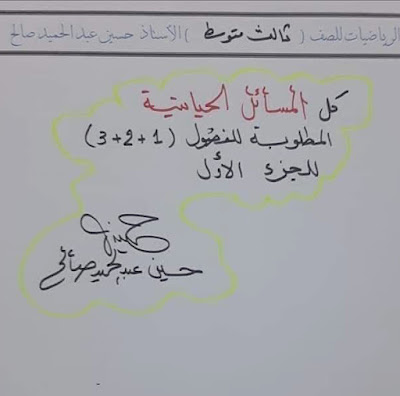 الرياضيات للصف ( ثالث متوسط ) الأستاذ حسين عبد الحميد صالح
كل المسائل الحياتية
المطلوبة للفصول (1+2+3)
للجزء الأول
حسين
حسين عبد الحميد صالح